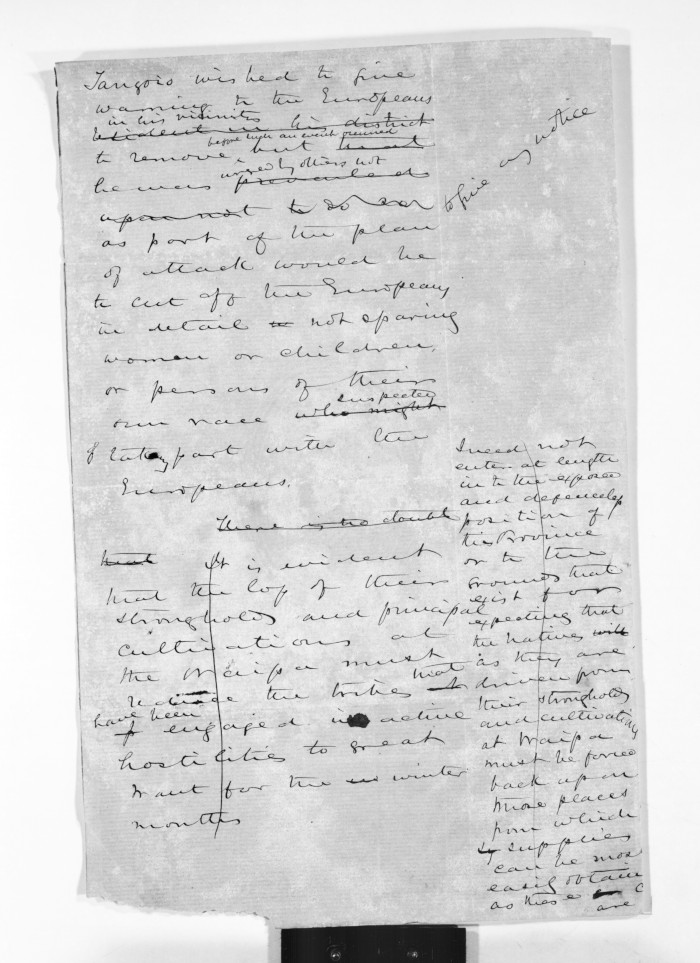 Tangoio wished to give
warning to the Europeans
in his vicinity
resident in his district
before such an event occurred
to remove, but
urged by others not
he was prevailed
upon not to do so
to give any notice
as part of the plan
of attack would be
to cut off the Europeans
in detail not sparing
women or children,
or persons of their
suspected
own race who might
of taking part with the
Europeans.
There is no doubt
that It is evident
that the loss of their
strongholds and principal
cultivations at
the Waipa must
reduce the tribes that
have been
engaged in active
hostilities to great
want for the winter
months
I need not
enter at length
into the exposed
and defenceless
position of
the Province
or to the
grounds that
exist for
expecting that
the natives will
as they are
driven from
their strongholds
and cultivations
at Waipa
must be forced
back upon
those places
from which
supplies
can be most
easily obtain
as these
are